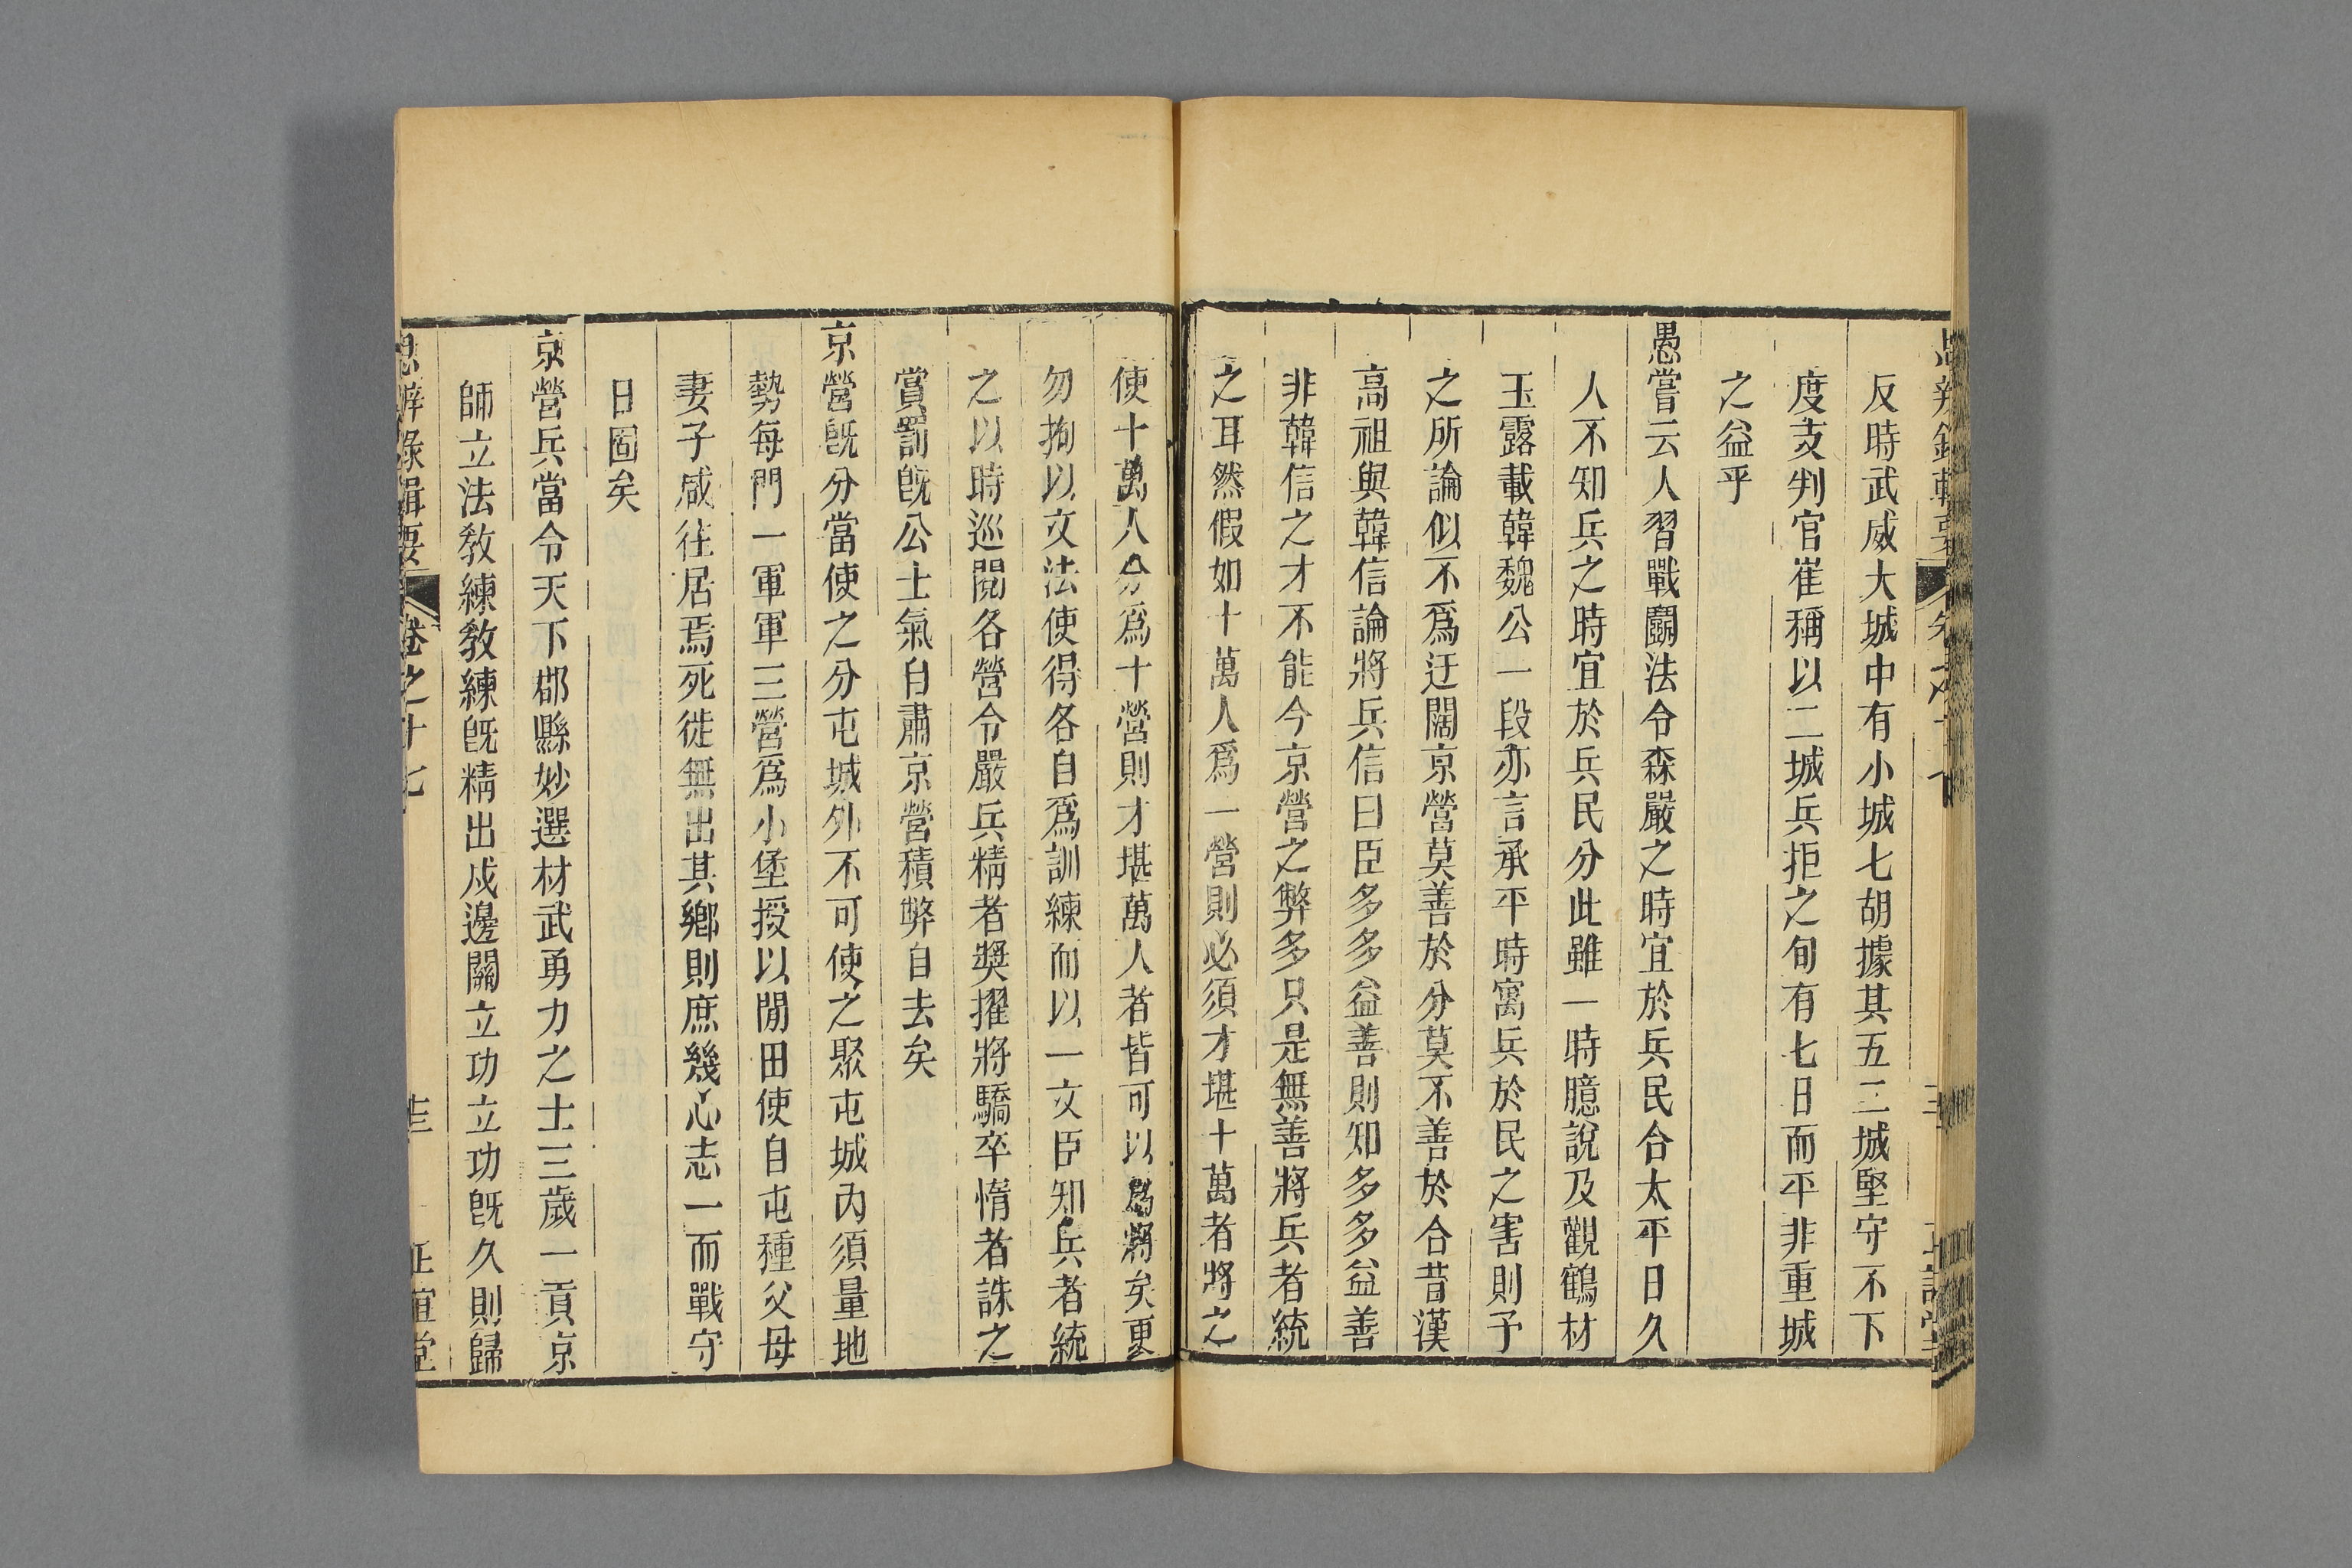 反時武威大城中有小城七胡據其五二城堅守不下
度支判官崔稱以二城兵拒之旬有七日而平非重城
之益乎
愚嘗云人習戰鬭法令森嚴之時宜於兵民合太平日久
人不知兵之時宜於兵民分此雖一時臆說及觀鶴材
玉露載韓魏公一段亦言承平時寓兵於民之害則予
之所論似不爲迂闊京營莫善於分莫不善於合昔漢
高祖與韓信論將兵信曰臣多多益善則知多多益善
非韓信之才不能今京營之弊多只是無善將兵者統
之耳然假如十萬人爲一營則必須才堪十萬者將之
使十萬人分爲十營則才堪萬人者皆可以爲將矣更
勿拘以文法使得各自爲訓練而以一文臣知兵者統
之以時巡閱各營令嚴兵精者奬擢將驕卒惰者誅之
賞罰旣公士氣自肅京營積弊自去矣
京營旣分當使之分屯城外不可使之聚屯城內須量地
勢每門一軍軍三營爲小堡授以閒田使自屯種父母
妻子咸往居焉死徙無出其鄉則庶幾心志一而戰守
日固矣
京營兵當令天下郡縣妙選材武勇力之士三歲一貢京
師立法敎練敎練旣精出戍邊關立功立功旣久則歸
思辨錄輯要 卷之十七 正誼堂